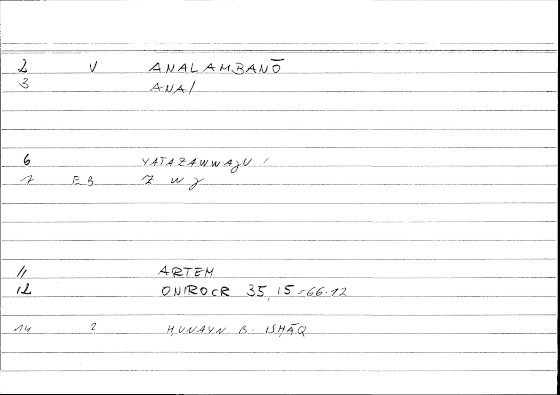 2 V ANALAMBANŌ
3 ANA/
6 YATAZAWWAǧU
7 EB Z W ǧ
11 ARTEM
12 ONIROCR 35,15=66.12
14 2 ḤUNAYN B. ISḤĀQ